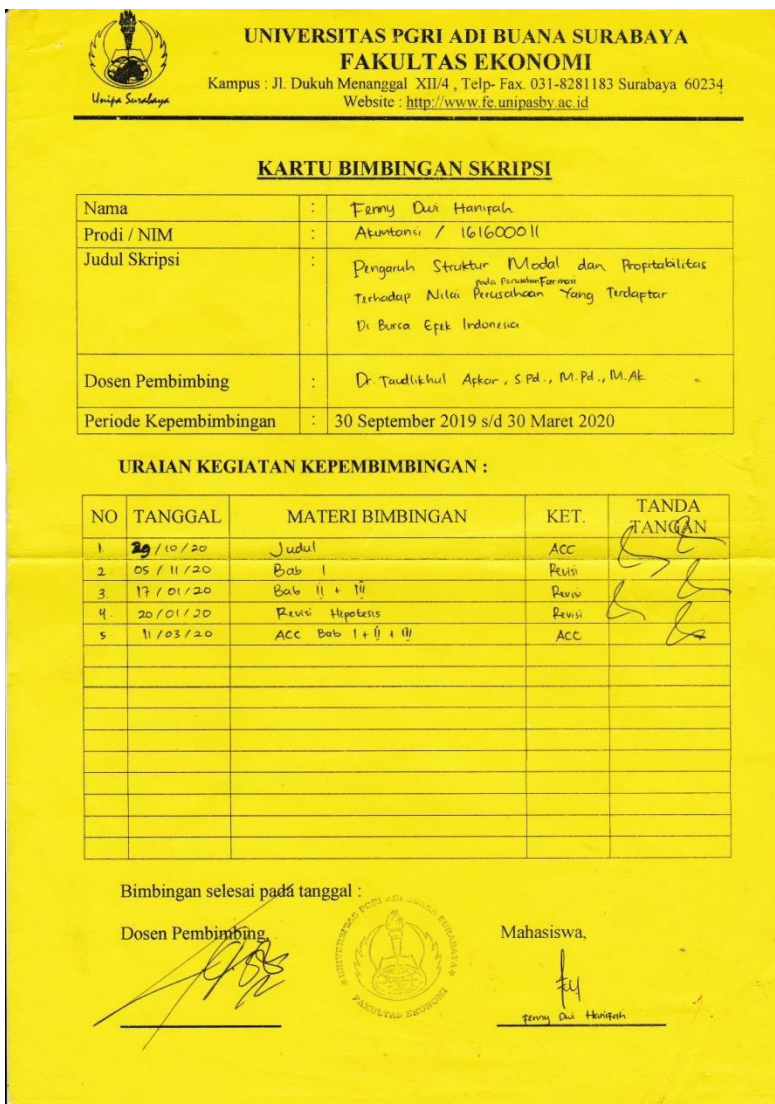 UNIVERSITAS PGRI ADI BUANA SURABAYA
FAKULTAS EKONOMI
Kampus : Jl. Dukuh Menanggal XII/4 , Telp- Fax. 031-8281183 Surabaya 60234
Website : http://www.fe.unipasby.ac.id
Unipa Surabaya
KARTU BIMBINGAN SKRIPSI
Nama : Fenny Dwi Hanifah
Prodi / NIM : Akuntansi / 161600011
Judul Skripsi : Pengaruh Struktur Modal dan Profitabilitas
pada Perusahan Farmasi
Terhadap Nilai Perusahaan Yang Terdaftar
Di Bursa Efek Indonesia
Dosen Pembimbing : Dr. Taudlikhul Afkar, S.Pd., M.Pd., M.Ak
Periode Kepembimbingan : 30 September 2019 s/d 30 Maret 2020
URAIAN KEGIATAN KEPEMBIMBINGAN :
NO TANGGAL MATERI BIMBINGAN KET. TANDA TANGAN
1. 29/10/20 Judul ACC
2. 05/11/20 Bab I Revisi
3. 17/01/20 Bab II + III Revisi
4. 20/01/20 Revisi Hipotesis Revisi
5. 11/03/20 ACC Bab I + II + III ACC
Bimbingan selesai pada tanggal :
Dosen Pembimbing, Mahasiswa,
UNIVERSITAS PGRI ADI BUANA SURABAYA
FAKULTAS EKONOMI
Fenny Dwi Hanifah